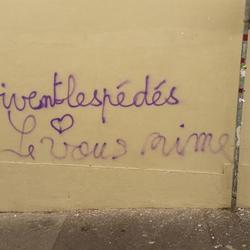 iventlespédés
Je vous aime